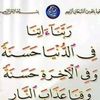 رَبَّنَا اٰتِنَا
فِى الدُّنْيَا حَسَنَةً
وَّفِى الْاٰخِرَةِ حَسَنَةً
وَّقِنَا عَذَابَ النَّارِ